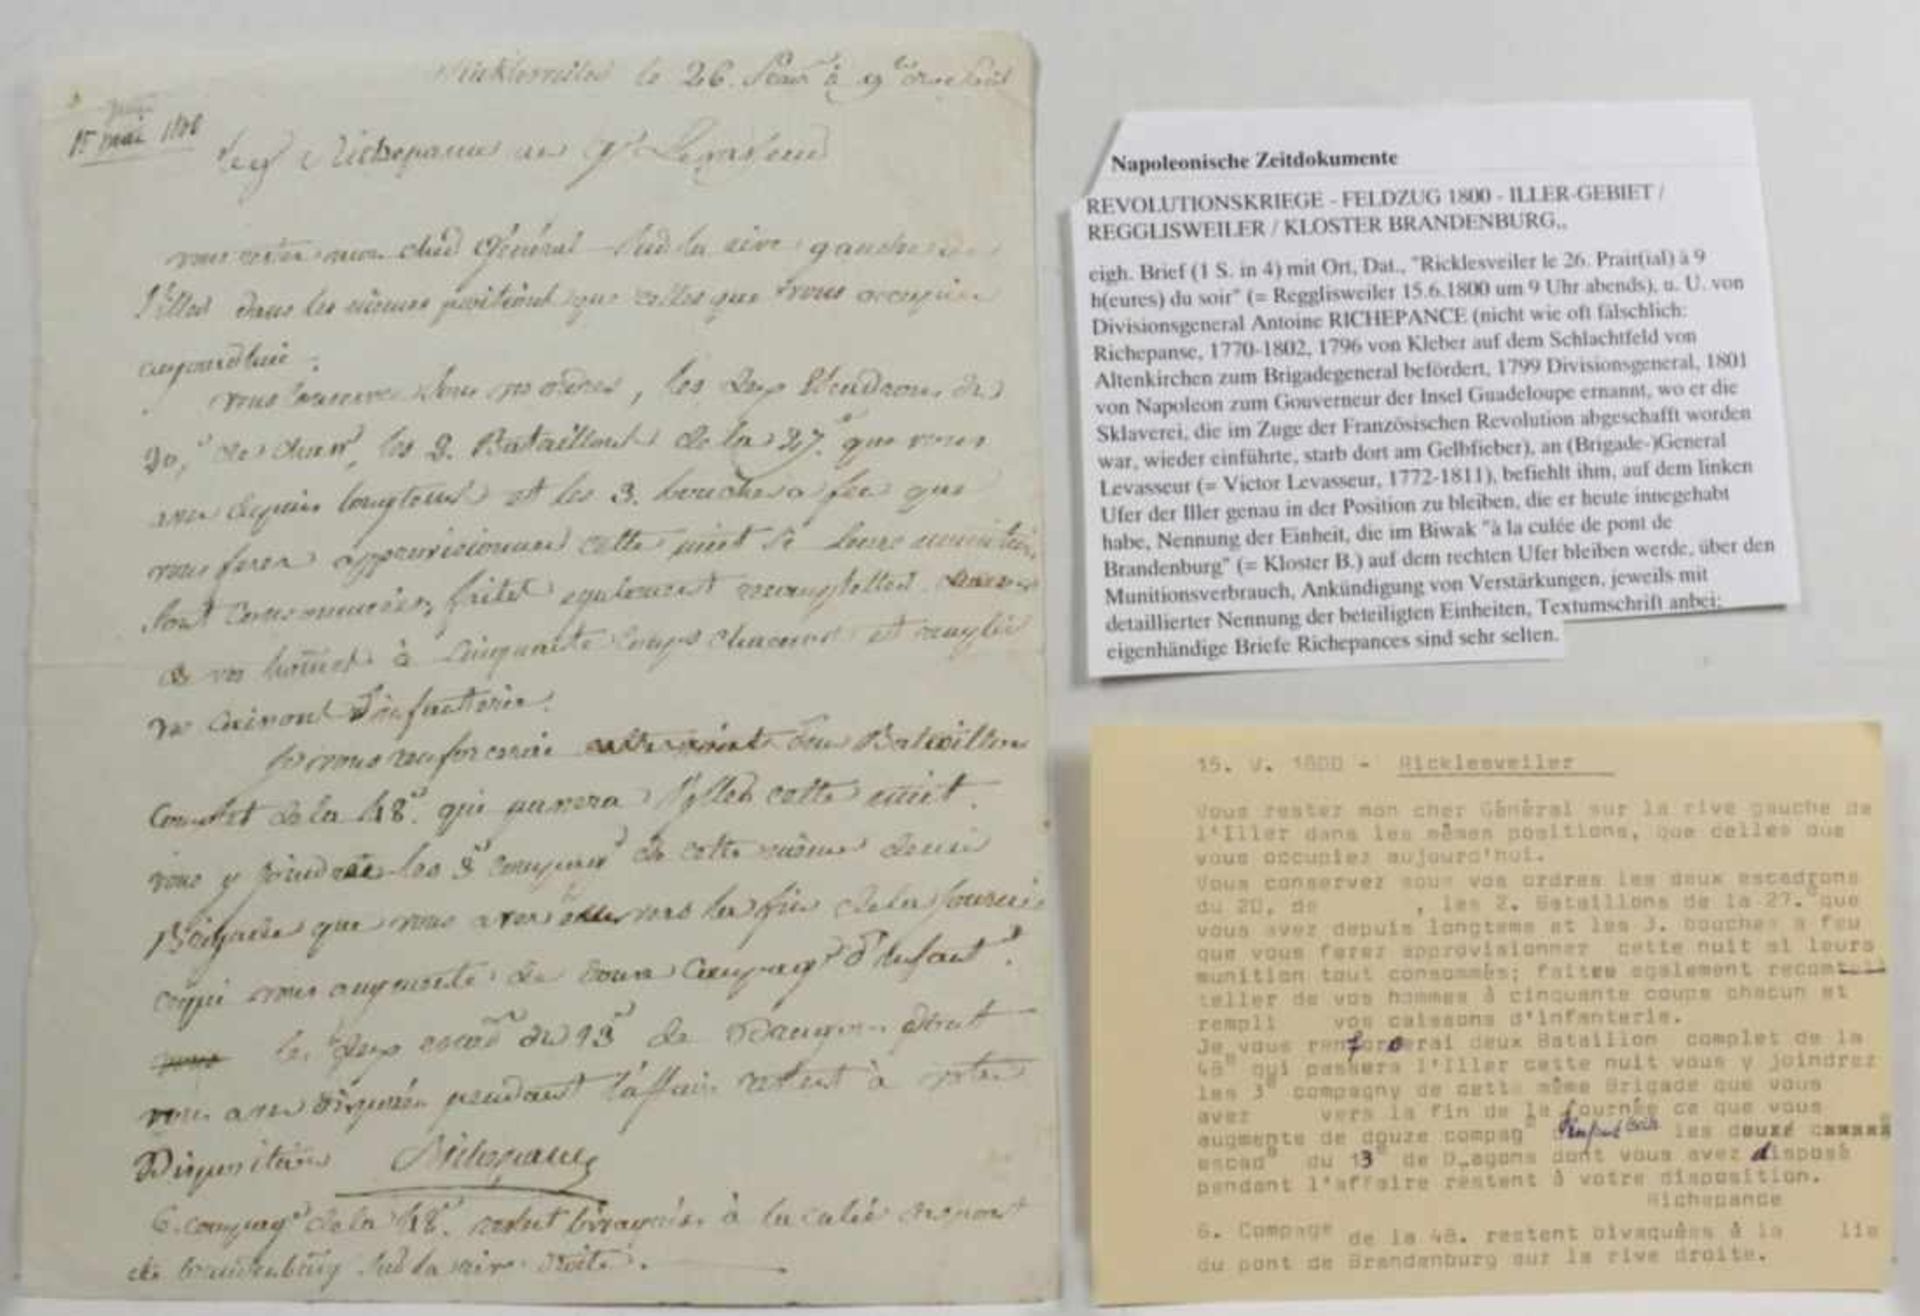 Ricklesveiler le 26. Prair à 9 h du soir
15 mai 1800
Richepance au Gl Levasseur
vous restez mon cher Général sur la rive gauche de
l'Iller dans les mêmes positions que celles que vous occupiez
aujourdhui.
vous conservez sous vos ordres, les deux Escadrons du
20e de chasrs, les 2. Bataillons de la 27e que vous
avez depuis longtems et les 3. bouches a feu que
vous ferez approvisionner cette nuit si leurs munitions
sont consommées, faites egalement recompletter
de vos hommes à cinquante coups chacuns et remplir
vos caissons d'infanterie.
Je vous renforcerai deux Bataillons
Complet de la 48e qui passera l'Iller cette nuit.
vous y joindrez les 3e compagnies de cette même demi
Brigade que vous avez vers la fin de la journée
ce qui vous augmente de douze Compags d'infant.
les deux escadns du 13e de Dragons dont
vous avez disposé pendant l'affaire restent à votre
Disposition Richepance
6. compags de la 48e restent bivaquées à la culée du pont
de brandenburg sur la rive droite.
Napoleonische Zeitdokumente
REVOLUTIONSKRIEGE - FELDZUG 1800 - ILLER-GEBIET /
REGGLISWEILER / KLOSTER BRANDENBURG,,
eigh. Brief (1 S. in 4) mit Ort, Dat., "Ricklesveiler le 26. Prair(ial) à 9
h(eures) du soir" (= Regglisweiler 15.6.1800 um 9 Uhr abends), u. U. von
Divisionsgeneral Antoine RICHEPANCE (nicht wie oft fälschlich:
Richepanse, 1770-1802, 1796 von Kleber auf dem Schlachtfeld von
Altenkirchen zum Brigadegeneral befördert, 1799 Divisionsgeneral, 1801
von Napoleon zum Gouverneur der Insel Guadeloupe ernannt, wo er die
Sklaverei, die im Zuge der Französischen Revolution abgeschafft worden
war, wieder einführte, starb dort am Gelbfieber), an (Brigade-)General
Levasseur (= Victor Levasseur, 1772-1811), befiehlt ihm, auf dem linken
Ufer der Iller genau in der Position zu bleiben, die er heute innegehabt
habe, Nennung der Einheit, die im Biwak "à la culée de pont de
Brandenburg" (= Kloster B.) auf dem rechten Ufer bleiben werde, über den
Munitionsverbrauch, Ankündigung von Verstärkungen, jeweils mit
detaillierter Nennung der beteiligten Einheiten, Textumschrift anbei;
eigenhändige Briefe Richepances sind sehr selten.
15. V. 1800 - Ricklesveiler
Vous restez mon cher Général sur la rive gauche de
l'Iller dans les mêmes positions, que celles que
vous occupiez aujourd'hui.
Vous conservez sous vos ordres les deux escadrons
du 20. de , les 2. Bataillons de la 27.e que
vous avez depuis longtems et les 3. bouches a feu
que vous ferez approvisionner cette nuit si leurs
munition tout consommés; faites egalement recom
teller de vos hommes à cinquante coups chacun et
rempli vos caissons d'infanterie.
Je vous renforcerai deux Bataillon complet de la
48e qui passera l'Iller cette nuit vous y joindrez
les 3e compagny de cette même Brigade que vous
avez vers la fin de la journée ce que vous
augmente de douze compagn d'infanterie les deuxe
escadn du 13e de Dragons dont vous avez disposé
pendant l'affaire restent à votre disposition.
Richepance
6. Compage de la 48. restent bivaquées à la lie
du pont de Brandenburg sur la rive droite.